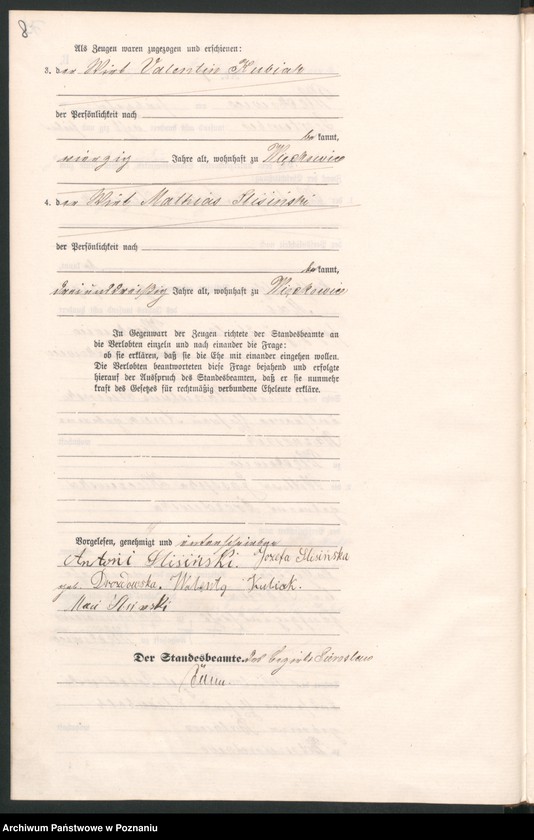 8
Als Zeugen waren zugezogen und erschienen:
3. der Wirt Valentin Kubiak
der Persönlichkeit nach
be kannt,
vierzig Jahre alt, wohnhaft zu Więckowice
4. der Wirt Mathias Slisiński
der Persönlichkeit nach
be kannt,
dreiunddreißig Jahre alt, wohnhaft zu Więckowice
In Gegenwart der Zeugen richtete der Standesbeamte an
die Verlobten einzeln und nach einander die Frage:
ob sie erklären, daß sie die Ehe mit einander eingehen wollen.
Die Verlobten beantworteten diese Frage bejahend und erfolgte
hierauf der Ausspruch des Standesbeamten, daß er sie nunmehr
kraft des Gesetzes für rechtmäßig verbundene Eheleute erkläre.
Vorgelesen, genehmigt und unterschrieben
Antoni Slisiński. Jozefa Slisińska
geb. Walenty Kubiak.
Der Standesbeamte.
Archiwum Państwowe w Poznaniu